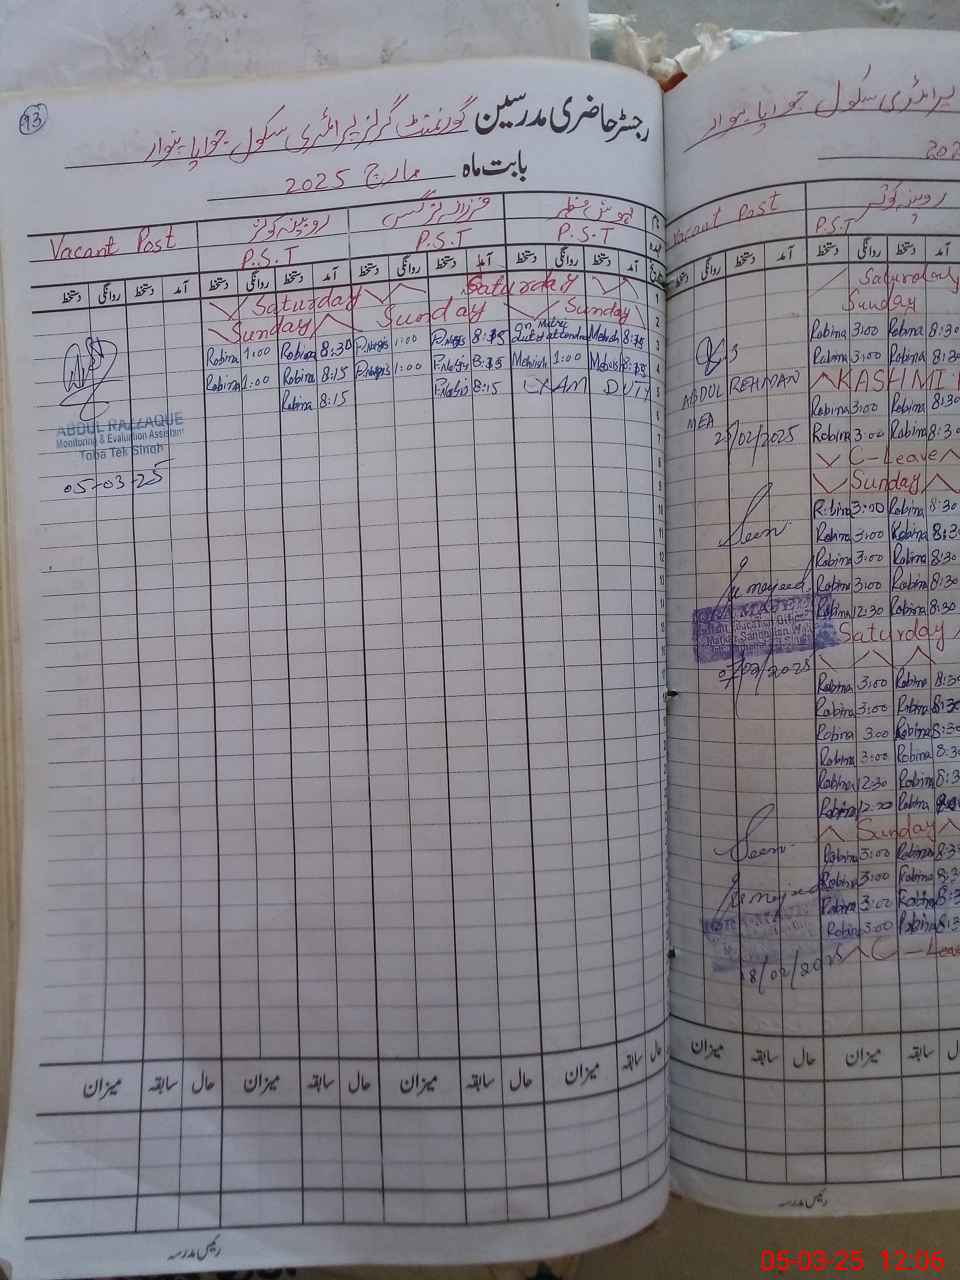 93
رجسٹر حاضری مدرسین گورنمنٹ گرلز پرائمری سکول
بابت ماہ مارچ 2025
Vacant Post روبینہ کوثر فرزانہ نرگس
P.S.T P.S.T P.S.T
دستخط روانگی دستخط آمد دستخط روانگی دستخط آمد دستخط روانگی دستخط آمد دستخط روانگی دستخط آمد
Saturday Saturday 1
Sunday Sunday Sunday 2
Robina 1:00 Robina 8:30 P.Nargis 1:00 P.Nargis 8:15 Mehwish 8:15 3
Robina 1:00 Robina 8:15 P.Nargis 1:00 P.Nargis 8:15 Mehwish 1:00 Mehwish 8:15 4
Robina 8:15 P.Nargis 8:15 EXAM DUTY 5
ABDUL RAZZAQUE
Monitoring & Evaluation Assistant
Toba Tek Singh
05-03-25
میزان سابقہ حال میزان سابقہ حال میزان سابقہ حال میزان سابقہ حال
رئیس مدرسہ
پرائمری سکول
Vacant Post روبینہ کوثر
P.S.T
روانگی دستخط آمد دستخط روانگی دستخط آمد
Saturday
Sunday
Robina 3:00 Robina 8:30
Robina 3:00 Robina 8:30
ABDUL REHMAN KASHMI
MEA Robina 3:00 Robina 8:30
Robina 3:00 Robina 8:30
C-Leave
Sunday
Robina 3:00 Robina 8:30
Seen Robina 3:00 Robina 8:30
Robina 3:00 Robina 8:30
Robina 3:00 Robina 8:30
Robina 12:30 Robina 8:30
Saturday
Robina 3:00 Robina 8:30
Robina 3:00 Robina 8:30
Robina 3:00 Robina 8:30
Robina 3:00 Robina 8:3
Robina 12:30 Robina 8:3
Robina Robina
Seen Sunday
Robina 3:00 Robina 8:3
Robina 3:00 Robina 8:3
Robina 3:00 Robina 8:3
Robina 3:00 Robina 8:3
18/02/2025 C-Leave
میزان سابقہ حال میزان سابقہ
رئیس مدرسہ
05-03-25 12:06